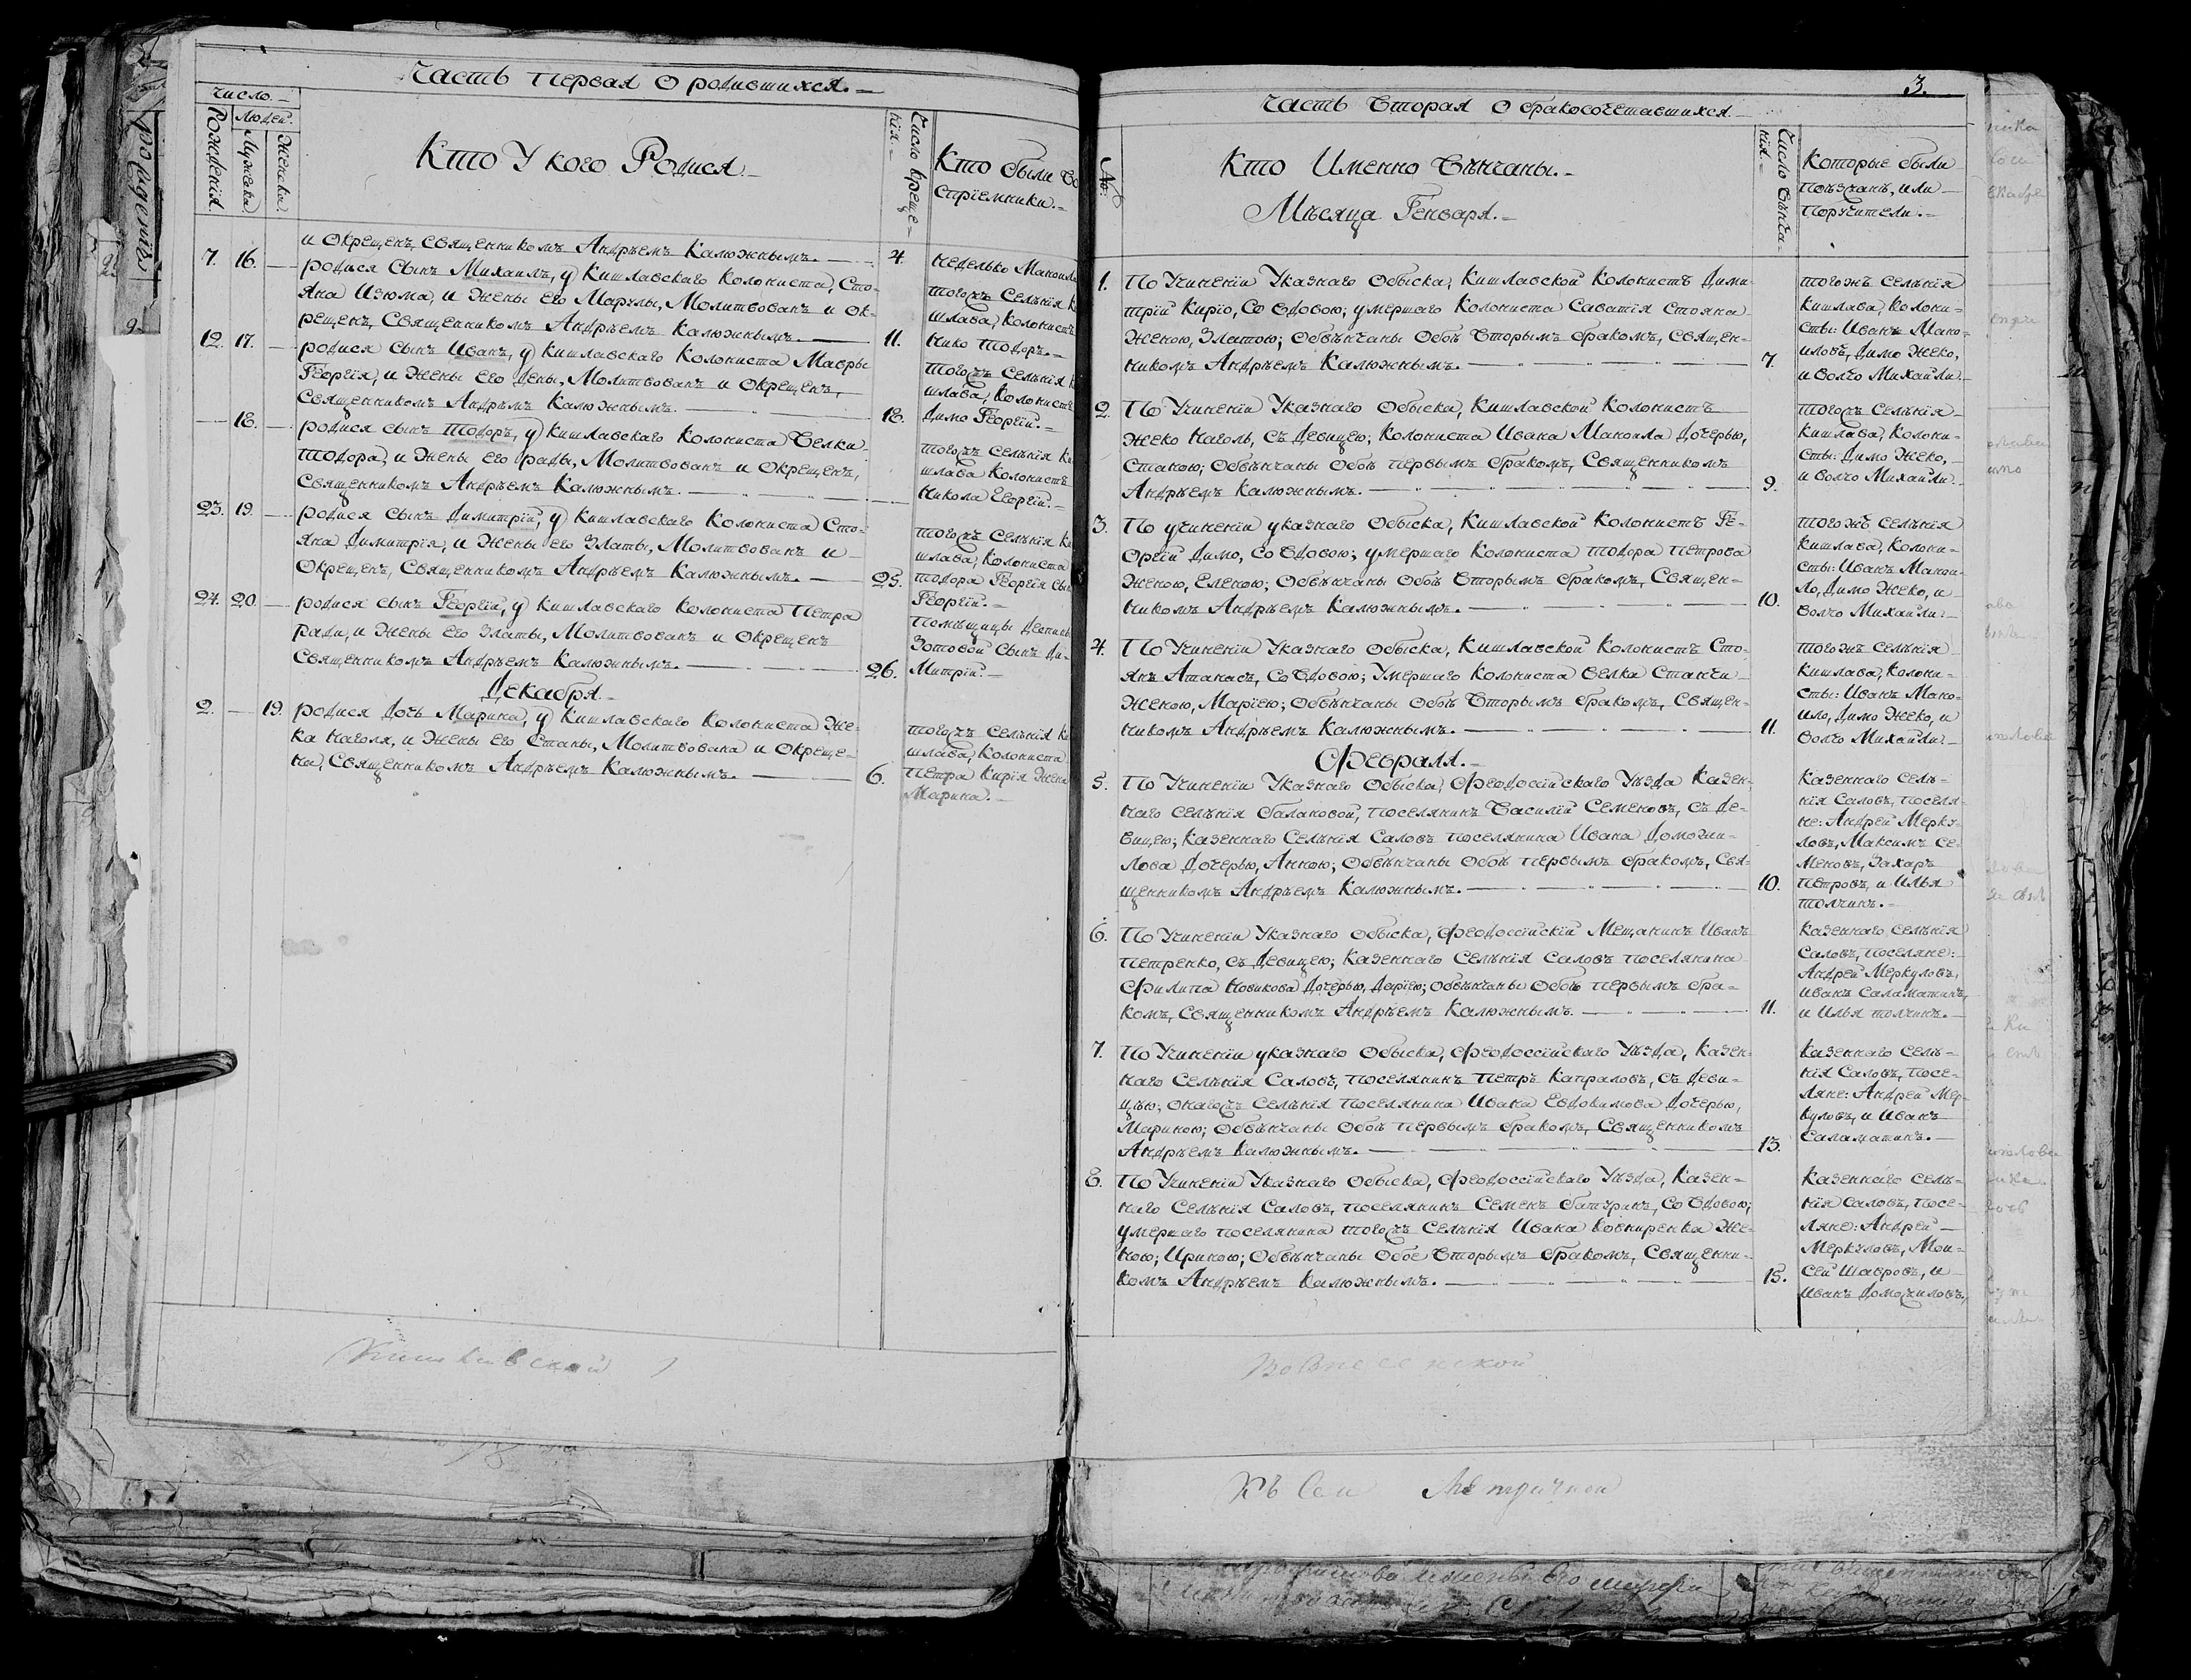 Часть первая О родившихся.
Число.
Рожденія.
Людей.
Мужеска.
Женска.
Кто У кого Родися
Число Креще-
нія.
Кто были Во
спріемники.
и Окрещенъ, Священникомъ Андрѣемъ Калюжнымъ.
4.
Неделько Маноила
7. 16. родися Сынъ Михаилъ, у Кишлавскаго Колониста, Сто-
яна Изюма, и Жены Его Марулы, Молитвованъ и Ок-
рещенъ, Священникомъ Андрѣемъ Калюжнымъ.
11.
тогожъ Селѣнія К
шлава, Колонистъ
Нико Тодоръ.
12. 17. родися Сынъ Иванъ, у Кишлавскаго Колониста Мавры
Георгія, и Жены Его Дены, Молитвованъ и Окрещенъ,
Священникомъ Андрѣмъ Калюжнымъ.
18.
тогожъ Селѣнія К
шлава, Колонистъ
Димо Георгій.
18. родися сынъ Тодоръ, у Кишлавскаго Колониста Велки
Тодора, и Жены Его Рады, Молитвованъ и Окрещенъ,
Священникомъ Андрѣемъ Калюжнымъ.
тогожъ Селѣнія Ки
шлава Колонистъ
Никола Георгій.
23. 19. родися сынъ Димитрій, у Кишлавскаго Колониста Сто-
яна Димитрія, и Жены Его Златы, Молитвованъ и
Окрещенъ, Священникомъ Андрѣемъ Калюжнымъ.
25.
тогожъ Селѣнія Ки
шлава, Колониста
Тодора Георгія Сынъ
Георгій.
24. 20. родися сынъ Георгій, у Кишлавскаго Колониста Петра
Ради, и Жены Его Златы, Молитвованъ и Окрещенъ
Священникомъ Андрѣемъ Калюжнымъ.
26.
Помѣщицы
Зотовой Сынъ Ди-
митрій.
Декабря.
2. 19. родися Дочь Марина, у Кишлавскаго Колониста Же-
ка Наголя, и Жены Его Станы, Молитвована и Окреще-
на, Священникомъ Андрѣемъ Калюжнымъ.
6.
тогожъ Селѣнія Ки
шлава, Колониста
Петра Кирія Жена
Марина.
3.
Часть Вторая О бракосочетавшихся.
№:
Кто Именно Вѣнчаны.
Мѣсяца Генваря.
Число Вѣнча-
нія.
Которые были
поѣзжанѣ, или
Поручители.
1. По Учиненіи Указнаго Обыска, Кишлавской Колонистъ Дими-
трій Кирїо, Со Вдовою; умершаго Колониста Саватія Стояна
Женою, Златою; Обвѣнчаны Обоѣ Вторымъ бракомъ, Священ-
никомъ Андрѣемъ Калюжнымъ.
7.
тогожъ Селѣнія
Кишлава, Колони-
сты: Иванъ Мано-
иловъ, Димо Жеко,
и Волчо Михаили.
2. По Учиненіи Указнаго Обыска, Кишлавской Колонистъ
Жеко Наголь, Съ Девицею; Колониста Ивана Маноила Дочерью,
Станою; Обвѣнчаны Обоѣ первымъ бракомъ, Священникомъ
Андрѣемъ Калюжнымъ.
9.
тогожъ Селѣнія
Кишлава, Колони-
сты: Димо Жеко,
и Волчо Михаили.
3. По учиненіи указнаго Обыска, Кишлавской Колонистъ Ге-
оргій Димо, Со Вдовою; умершаго Колониста Тодора Петрова
Женою, Еленою; Обвѣнчаны Обоѣ Вторымъ бракомъ, Священ-
никомъ Андрѣемъ Калюжнымъ.
10.
тогожъ Селѣнія
Кишлава, Колони-
сты: Иванъ Манои-
ло, Димо Жеко, и
Волчо Михаили.
4. По Учиненіи Указнаго Обыска, Кишлавской Колонистъ Сто-
янъ Атанасъ, Со Вдовою; Умершаго Колониста Велка Станчи
Женою, Маріею; Обвѣнчаны Обоѣ Вторымъ бракомъ, Священ-
никомъ Андрѣемъ Калюжнымъ.
11.
тогожъ Селѣнія
Кишлава, Колони-
сты: Иванъ Мано-
ило, Димо Жеко, и
Волчо Михаили.
Февраля.
5. По Учиненіи Указнаго Обыска, Феодосійскаго Уѣзда Казен-
наго Селѣнія Балановой, поселянинъ Василій Семеновъ, Съ Де-
вицею; Казеннаго Селѣнія Саловъ поселянина Ивана Доможи-
лова Дочерью, Анною; Обвѣнчаны Обоѣ первымъ бракомъ, Свя-
щенникомъ Андрѣемъ Калюжнымъ.
10.
Казеннаго Селѣ-
нія Саловъ, поселя-
не: Андрей Мерку-
ловъ, Максимъ Се-
меновъ, Захаръ
Петровъ, и Илья
Толчинъ.
6. По Учиненіи Указнаго Обыска, Феодоссійскій Мещанинъ Иванъ
Петренко, Съ Девицею; Казеннаго Селѣнія Саловъ поселянина
Филипа Новикова Дочерью, Даріею; Обвѣнчаны Обоѣ первымъ бра-
комъ, Священникомъ Андрѣемъ Калюжнымъ.
11.
Казеннаго Селѣнія
Саловъ, поселяне:
Андрей Меркуловъ,
Иванъ Саламатинъ,
и Илья Толчинъ.
7. По Учиненіи указнаго Обыска, Феодоссійскаго Уѣзда, Казен-
наго Селѣнія Саловъ, поселянинъ Петръ Капраловъ, Съ Деви-
цѣю; онагожъ Селѣнія поселянина Ивана Евдокимова Дочерью,
Мариною; Обвѣнчаны Обоѣ первымъ бракомъ, Священникомъ
Андрѣемъ Калюжнымъ.
13.
Казеннаго Селѣ-
нія Саловъ, посе-
ляне: Андрей Мер-
куловъ, и Иванъ
Саламатинъ.
8. По Учиненіи Указнаго Обыска, Феодоссійскаго Уѣзда, Казен-
наго Селѣнія Саловъ, поселянинъ Семенъ Батуринъ, Со Вдовою;
умершаго поселянина тогожъ Селѣнія Ивана Ковниренка Же-
ною; Ириною; Обвѣнчаны Обое Вторымъ бракомъ, Священни-
комъ Андрѣемъ Калюжнымъ.
15.
Казеннаго Селѣ-
нія Саловъ, посе-
ляне: Андрей
Меркуловъ, Мои-
сей Шавровъ, и
Иванъ Доможиловъ,
Кишлавской
Вознесенской
Къ Сей Метричной